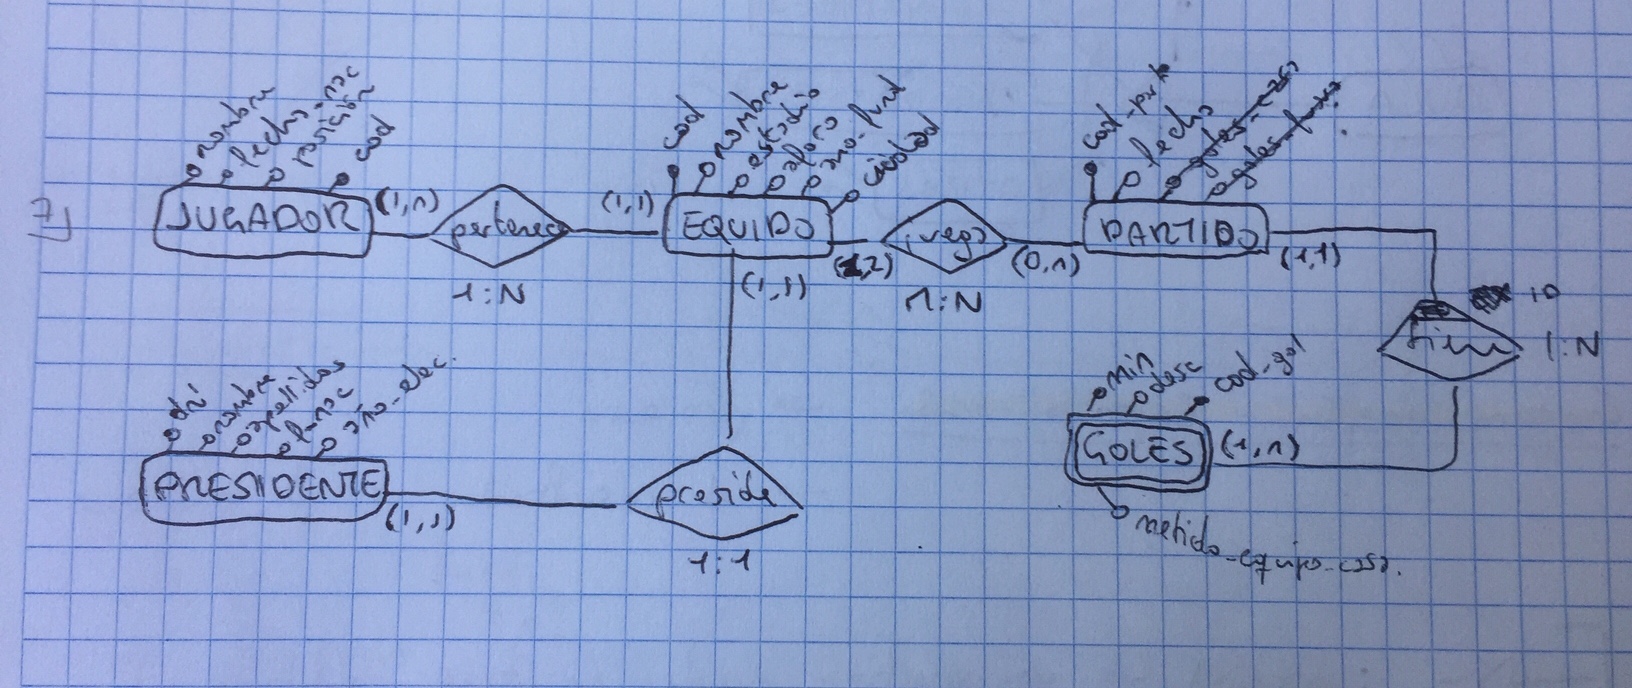 7)
nombre
fecha-nac
posición
cod
JUGADOR
(1,n)
pertenece
1:N
(1,1)
cod
nombre
estadio
aforo
año-fund
ciudad
EQUIPO
(1,1)
(1,2)
juega
1:N
(0,n)
cod-part
fecha
goles-casa
goles-fuera
PARTIDO
(1,1)
ID
tiene
1:N
min
desc
cod-gol
GOLES
(1,n)
metido-equipo-casa.
dni
nombre
apellidos
f-nac
año-elec.
PRESIDENTE
(1,1)
preside
1:1